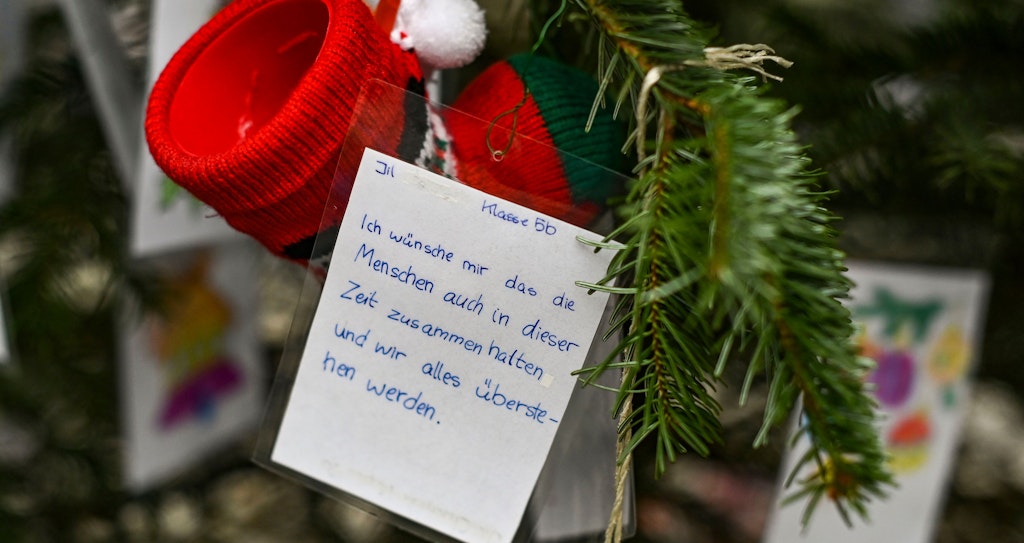 Jil
Klasse 5b
Ich wünsche mir das die
Menschen auch in dieser
Zeit zusammenhalten
und wir alles überste-
hen werden.